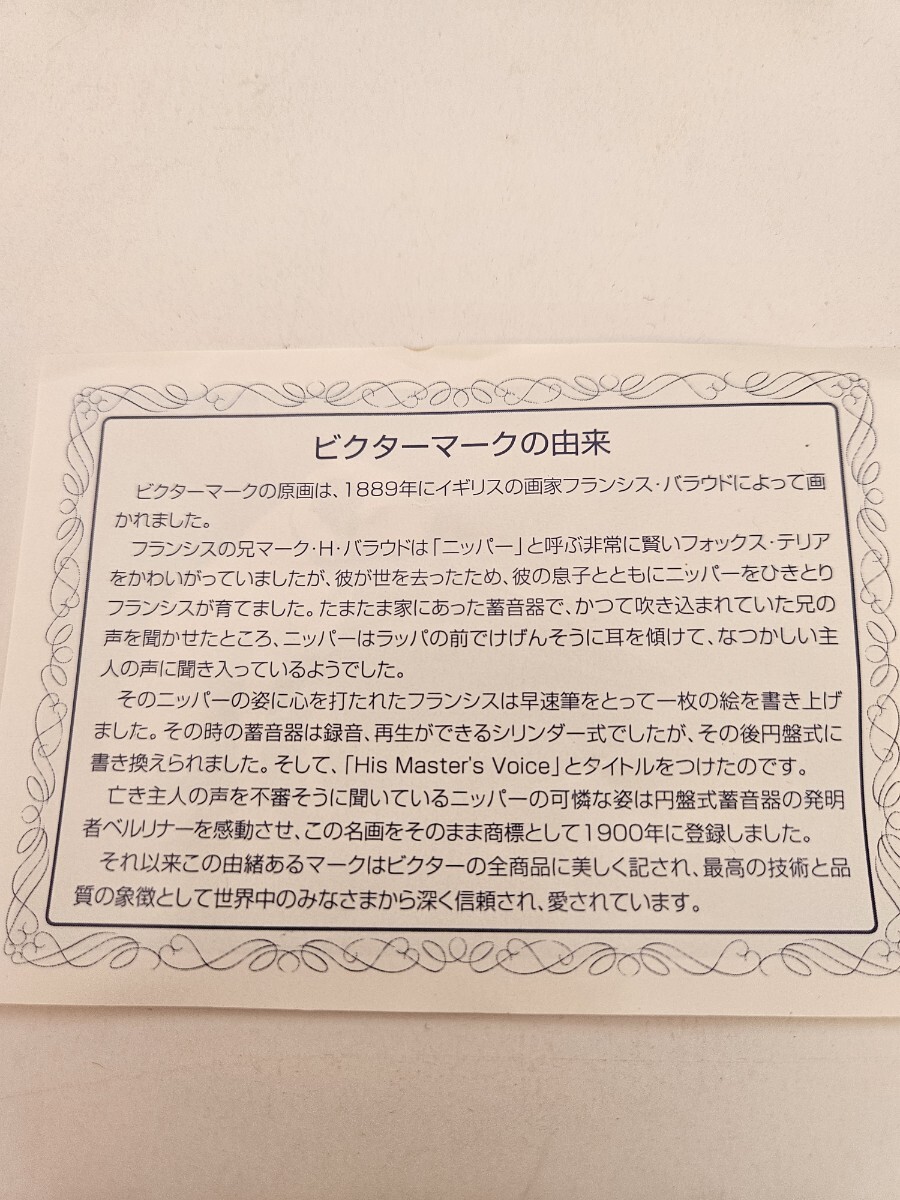 ビクターマークの由来
ビクターマークの原画は、1889年にイギリスの画家フランシス・バラウドによって画
かれました。
フランシスの兄マーク・H・バラウドは「ニッパー」と呼ぶ非常に賢いフォックス・テリア
をかわいがっていましたが、彼が世を去ったため、彼の息子とともにニッパーをひきとり
フランシスが育てました。たまたま家にあった蓄音器で、かつて吹き込まれていた兄の
声を聞かせたところ、ニッパーはラッパの前でけげんそうに耳を傾けて、なつかしい主
人の声に聞き入っているようでした。
そのニッパーの姿に心を打たれたフランシスは早速筆をとって一枚の絵を書き上げ
ました。その時の蓄音器は録音、再生ができるシリンダー式でしたが、その後円盤式に
書き換えられました。そして、「His Master's Voice」とタイトルをつけたのです。
亡き主人の声を不審そうに聞いているニッパーの可憐な姿は円盤式蓄音器の発明
者ベルリナーを感動させ、この名画をそのまま商標として1900年に登録しました。
それ以来この由緒あるマークはビクターの全商品に美しく記され、最高の技術と品
質の象徴として世界中のみなさまから深く信頼され、愛されています。